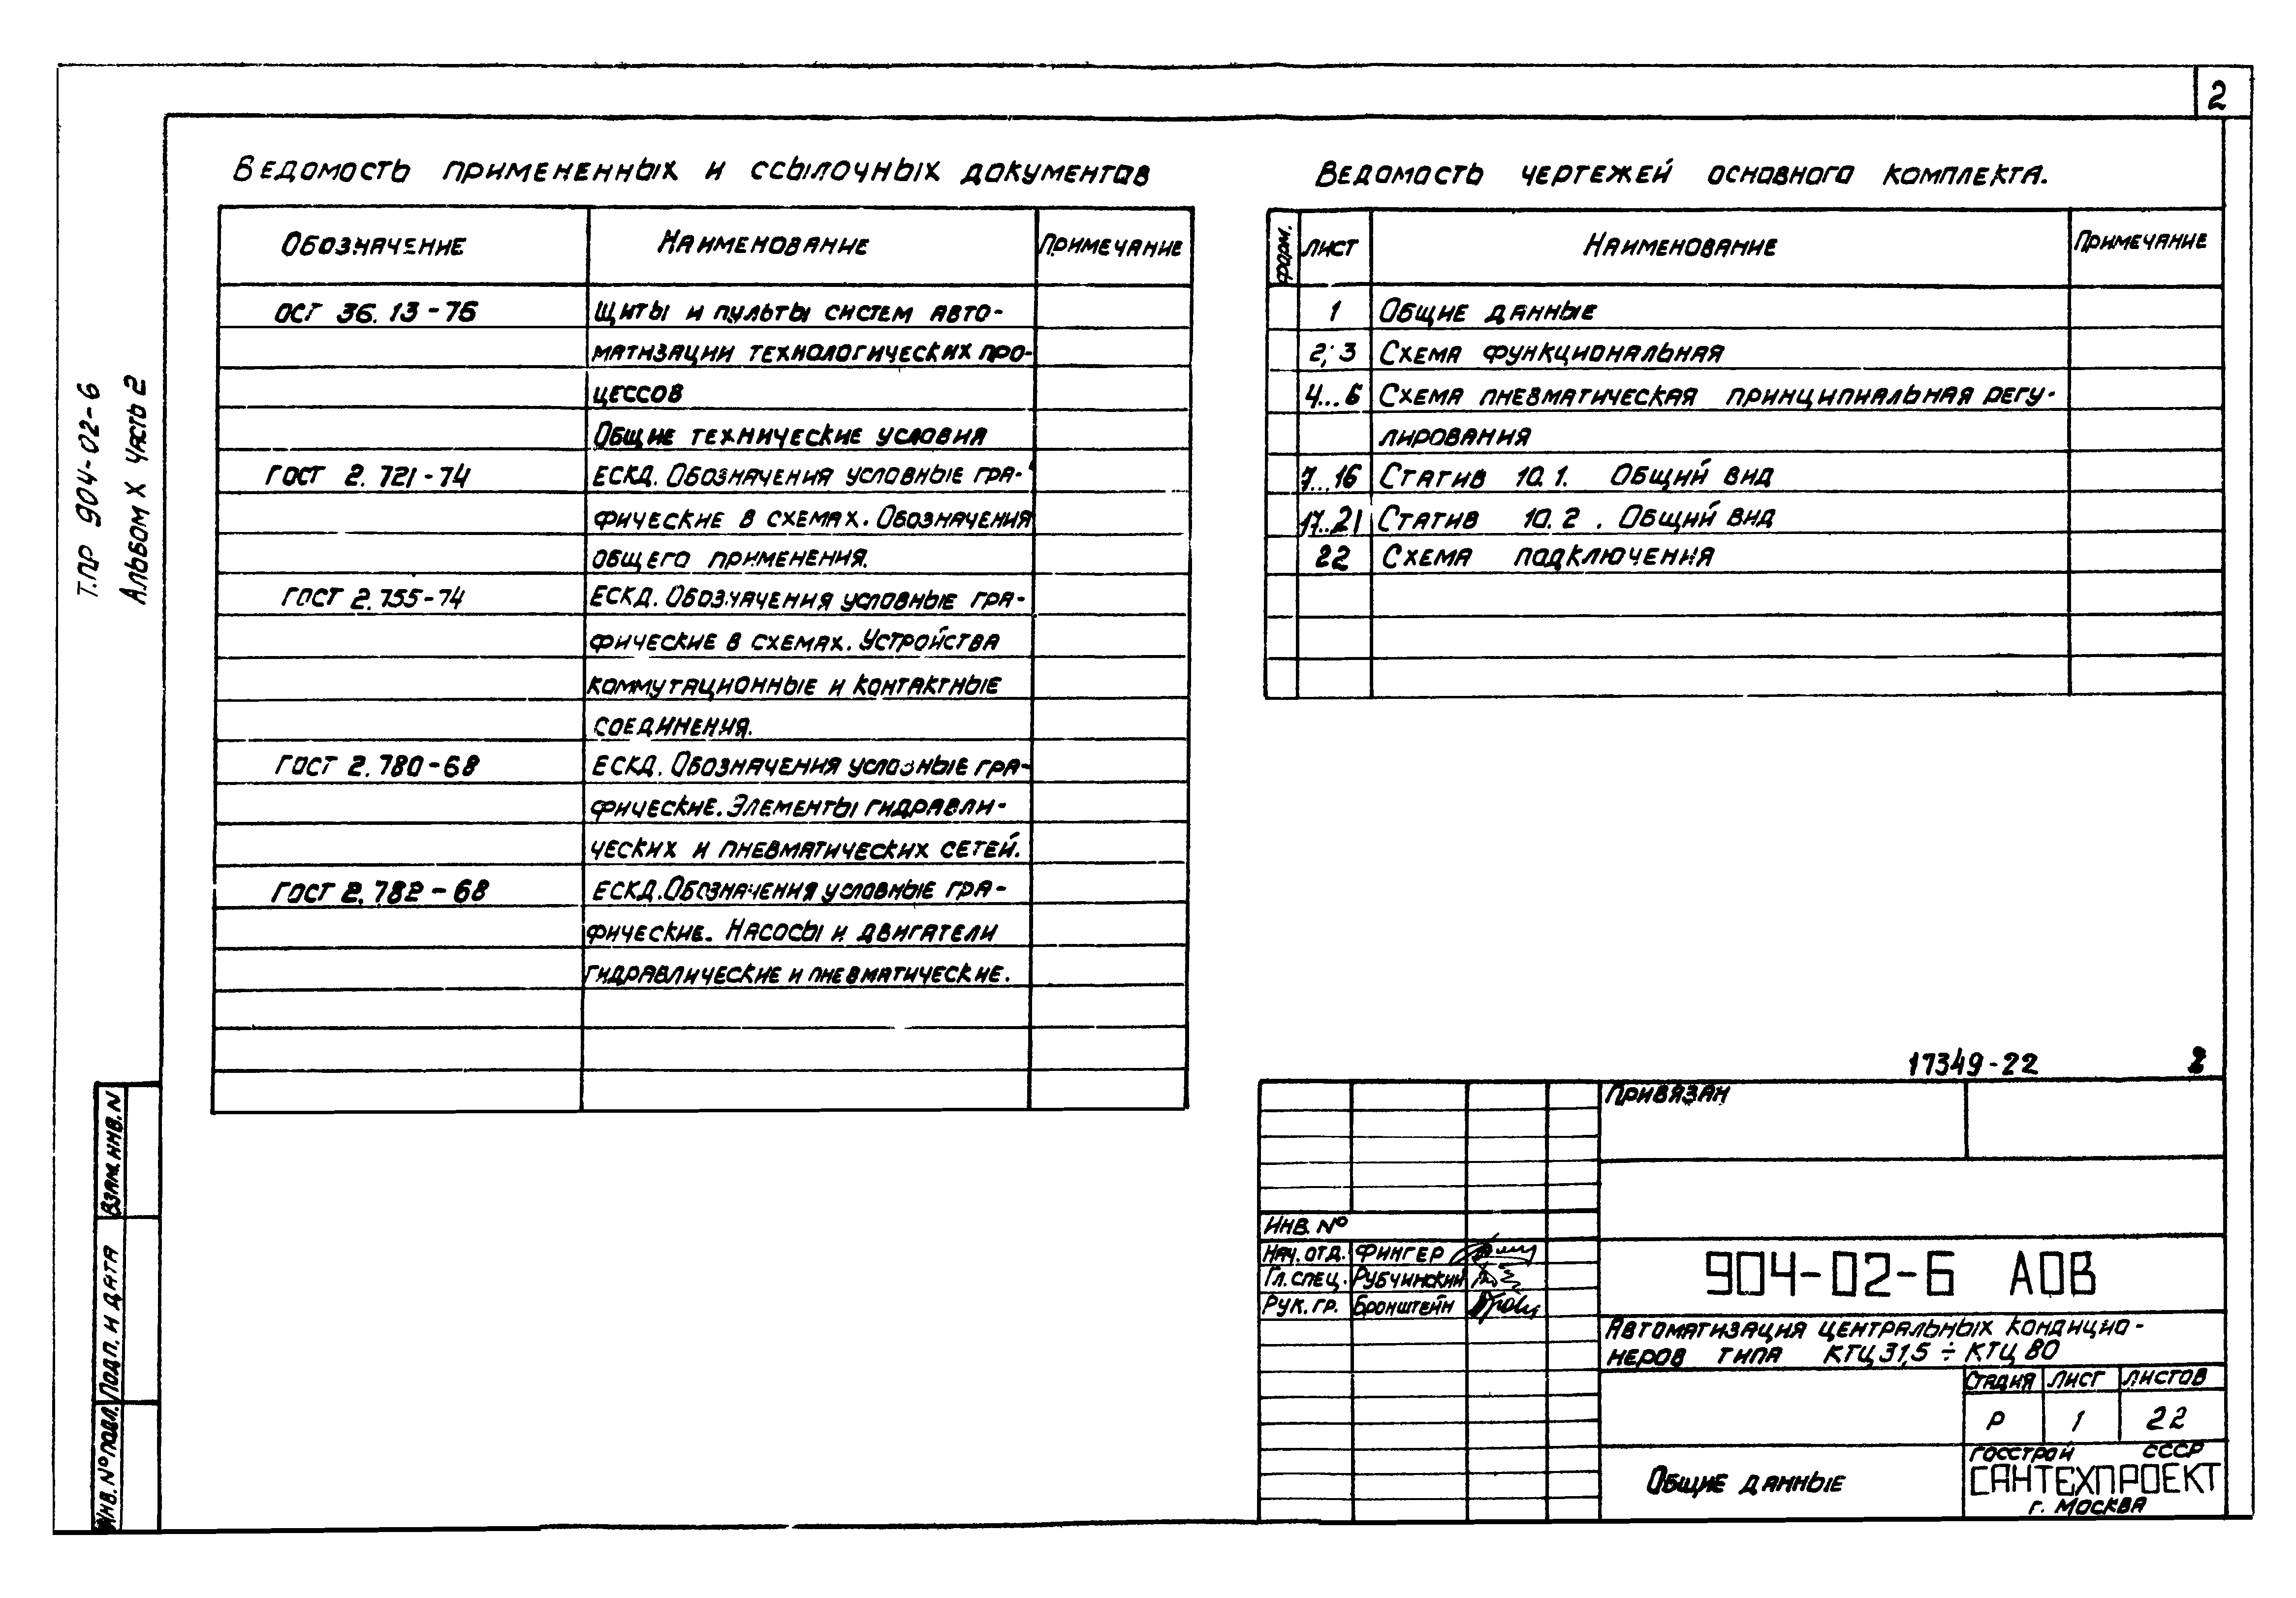 2
Т.ПР 904-02-6
Альбом X часть 2
Ведомость примененных и ссылочных документов
Обозначение Наименование Примечание
ОСТ 36.13-76 Щиты и пульты систем авто-
матизации технологических про-
цессов
Общие технические условия
ГОСТ 2.721-74 ЕСКД. Обозначения условные гра-
фические в схемах. Обозначения
общего применения.
ГОСТ 2.755-74 ЕСКД. Обозначения условные гра-
фические в схемах. Устройства
коммутационные и контактные
соединения.
ГОСТ 2.780-68 ЕСКД. Обозначения условные гра-
фические. Элементы гидравли-
ческих и пневматических сетей.
ГОСТ 2.782-68 ЕСКД. Обозначения условные гра-
фические. Насосы и двигатели
гидравлические и пневматические.
Ведомость чертежей основного комплекта.
Форм. Лист Наименование Примечание
1 Общие данные
2; 3 Схема функциональная
4...6 Схема пневматическая принципиальная регу-
лирования
7...16 Статив 10.1. Общий вид
17..21 Статив 10.2. Общий вид
22 Схема подключения
17349-22 2
Привязан
Инв. №
Нач. отд. Фингер
Гл. спец. Рубчинский
Рук. гр. Бронштейн
904-02-6 АОВ
Автоматизация центральных кондицио-
неров типа КТЦ 31,5 ÷ КТЦ 80
Стадия Лист Листов
Р 1 22
Общие данные
Госстрой СССР
САНТЕХПРОЕКТ
г. Москва
Взам. инв. N
Подп. и дата
Инв. № подл.